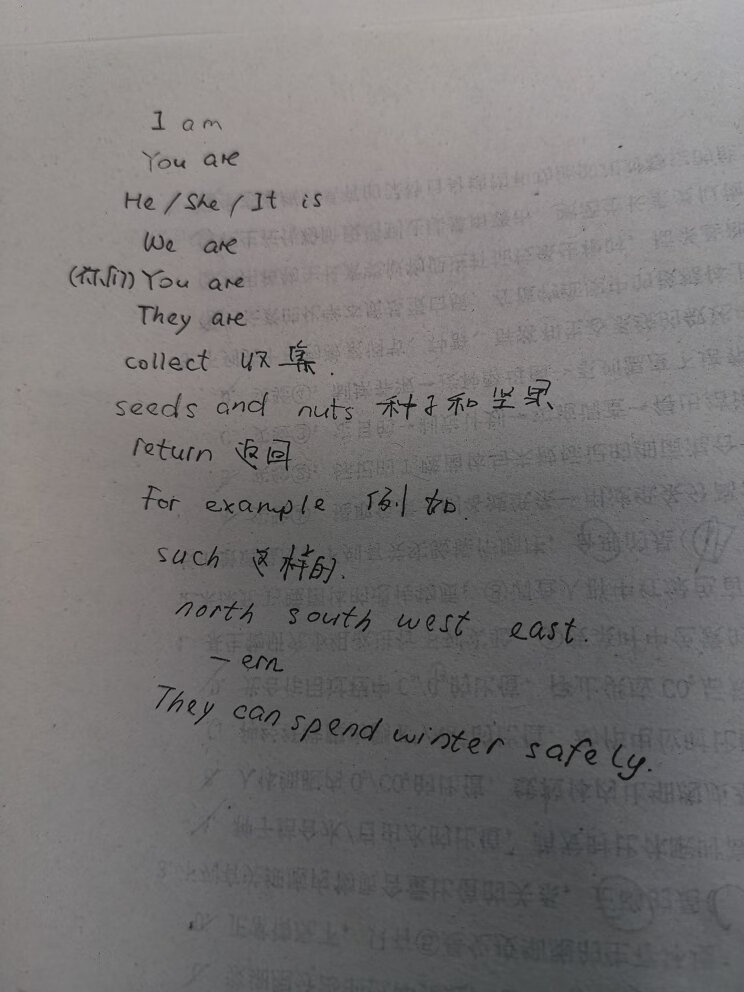 I am
You are
He / She / It is
We are
(你们) You are
They are
collect 收集.
seeds and nuts 种子和坚果
return 返回
For example 例如.
such 这样的.
north south west east.
- ern
They can spend winter safely.